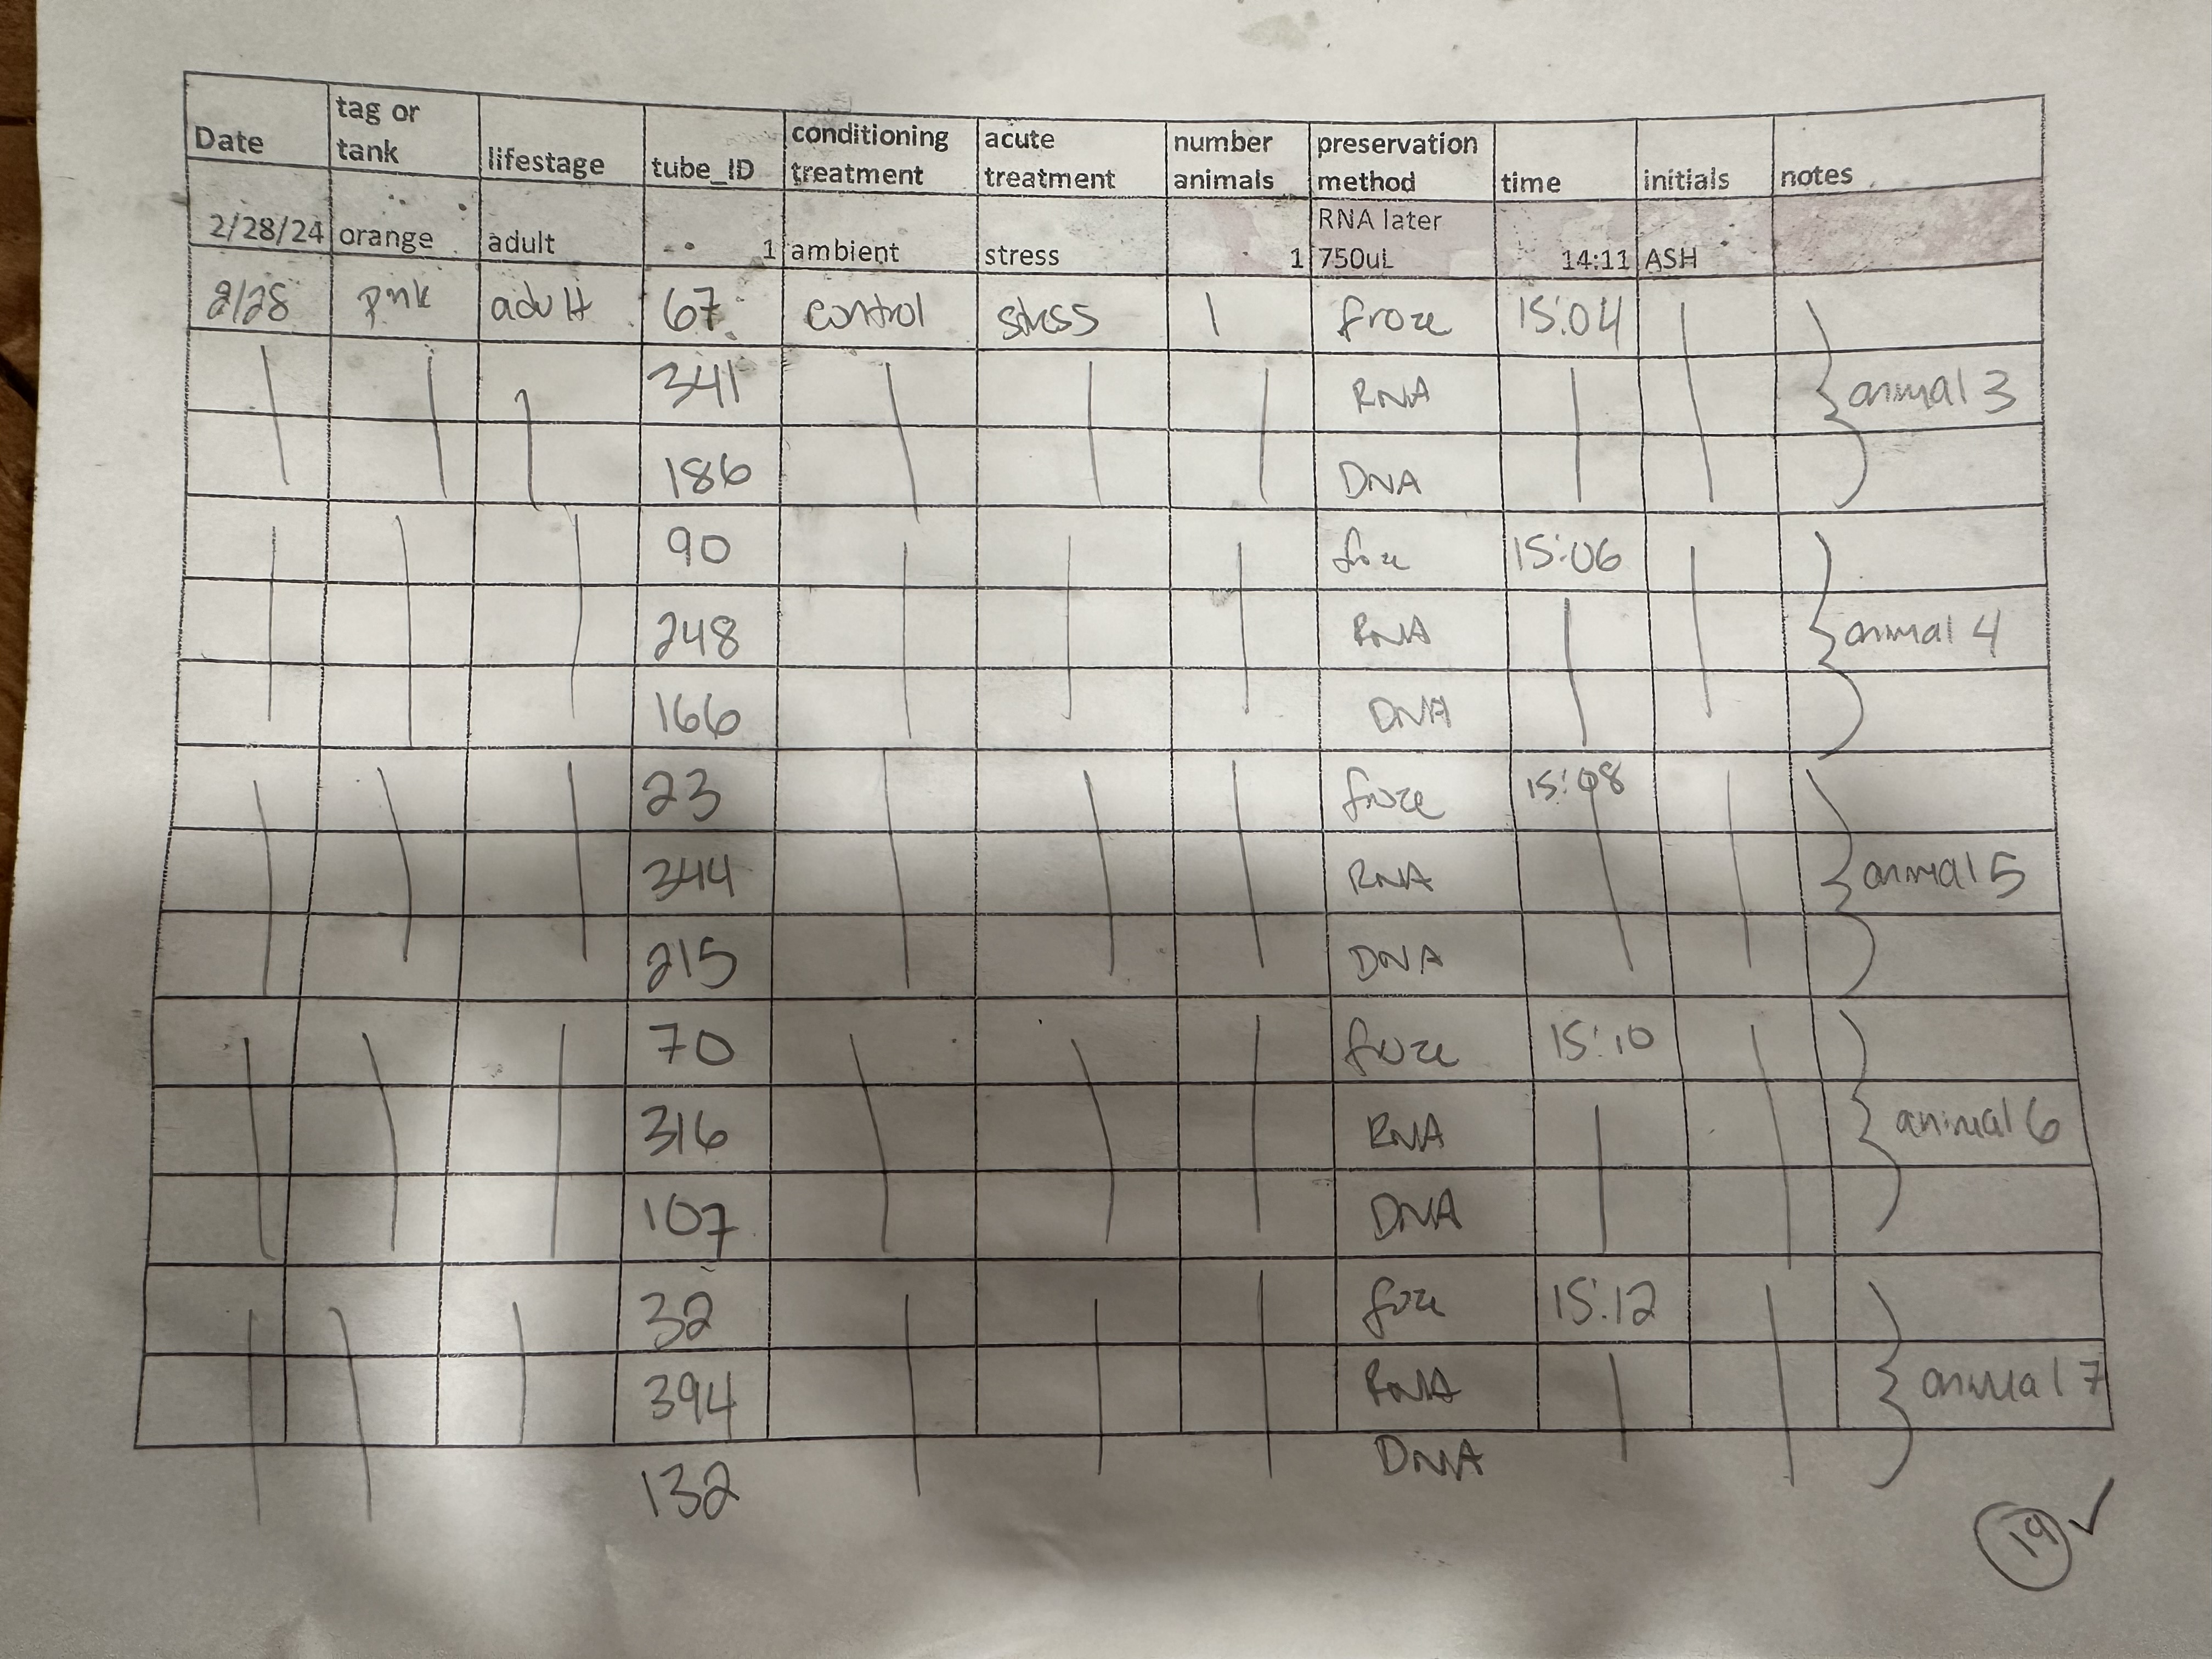 Date tag or tank lifestage tube_ID conditioning treatment acute treatment number animals preservation method time initials notes
2/28/24 orange adult 1 ambient stress 1 RNA later 750uL 14:11 ASH
2/28 pink adult 67 control stress 1 froze 15:04
341 RNA animal 3
186 DNA
90 froze 15:06
248 RNA animal 4
166 DNA
23 froze 15:08
344 RNA animal 5
215 DNA
70 froze 15:10
316 RNA animal 6
167 DNA
32 froze 15:12
394 RNA animal 7
132 DNA
19